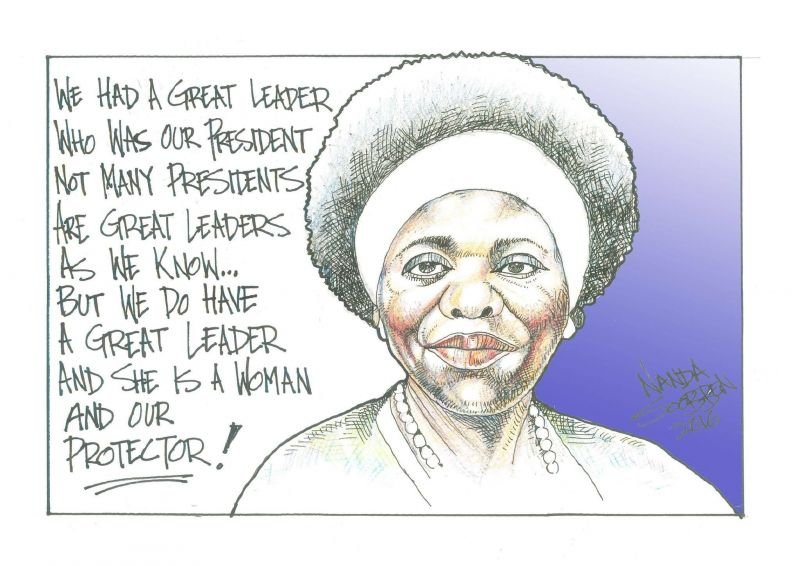 WE HAD A GREAT LEADER
WHO WAS OUR PRESIDENT
NOT MANY PRESIDENTS
ARE GREAT LEADERS
AS WE KNOW...
BUT WE DO HAVE
A GREAT LEADER
AND SHE IS A WOMAN
AND OUR
PROTECTOR!
NANDA
SOOBBEN